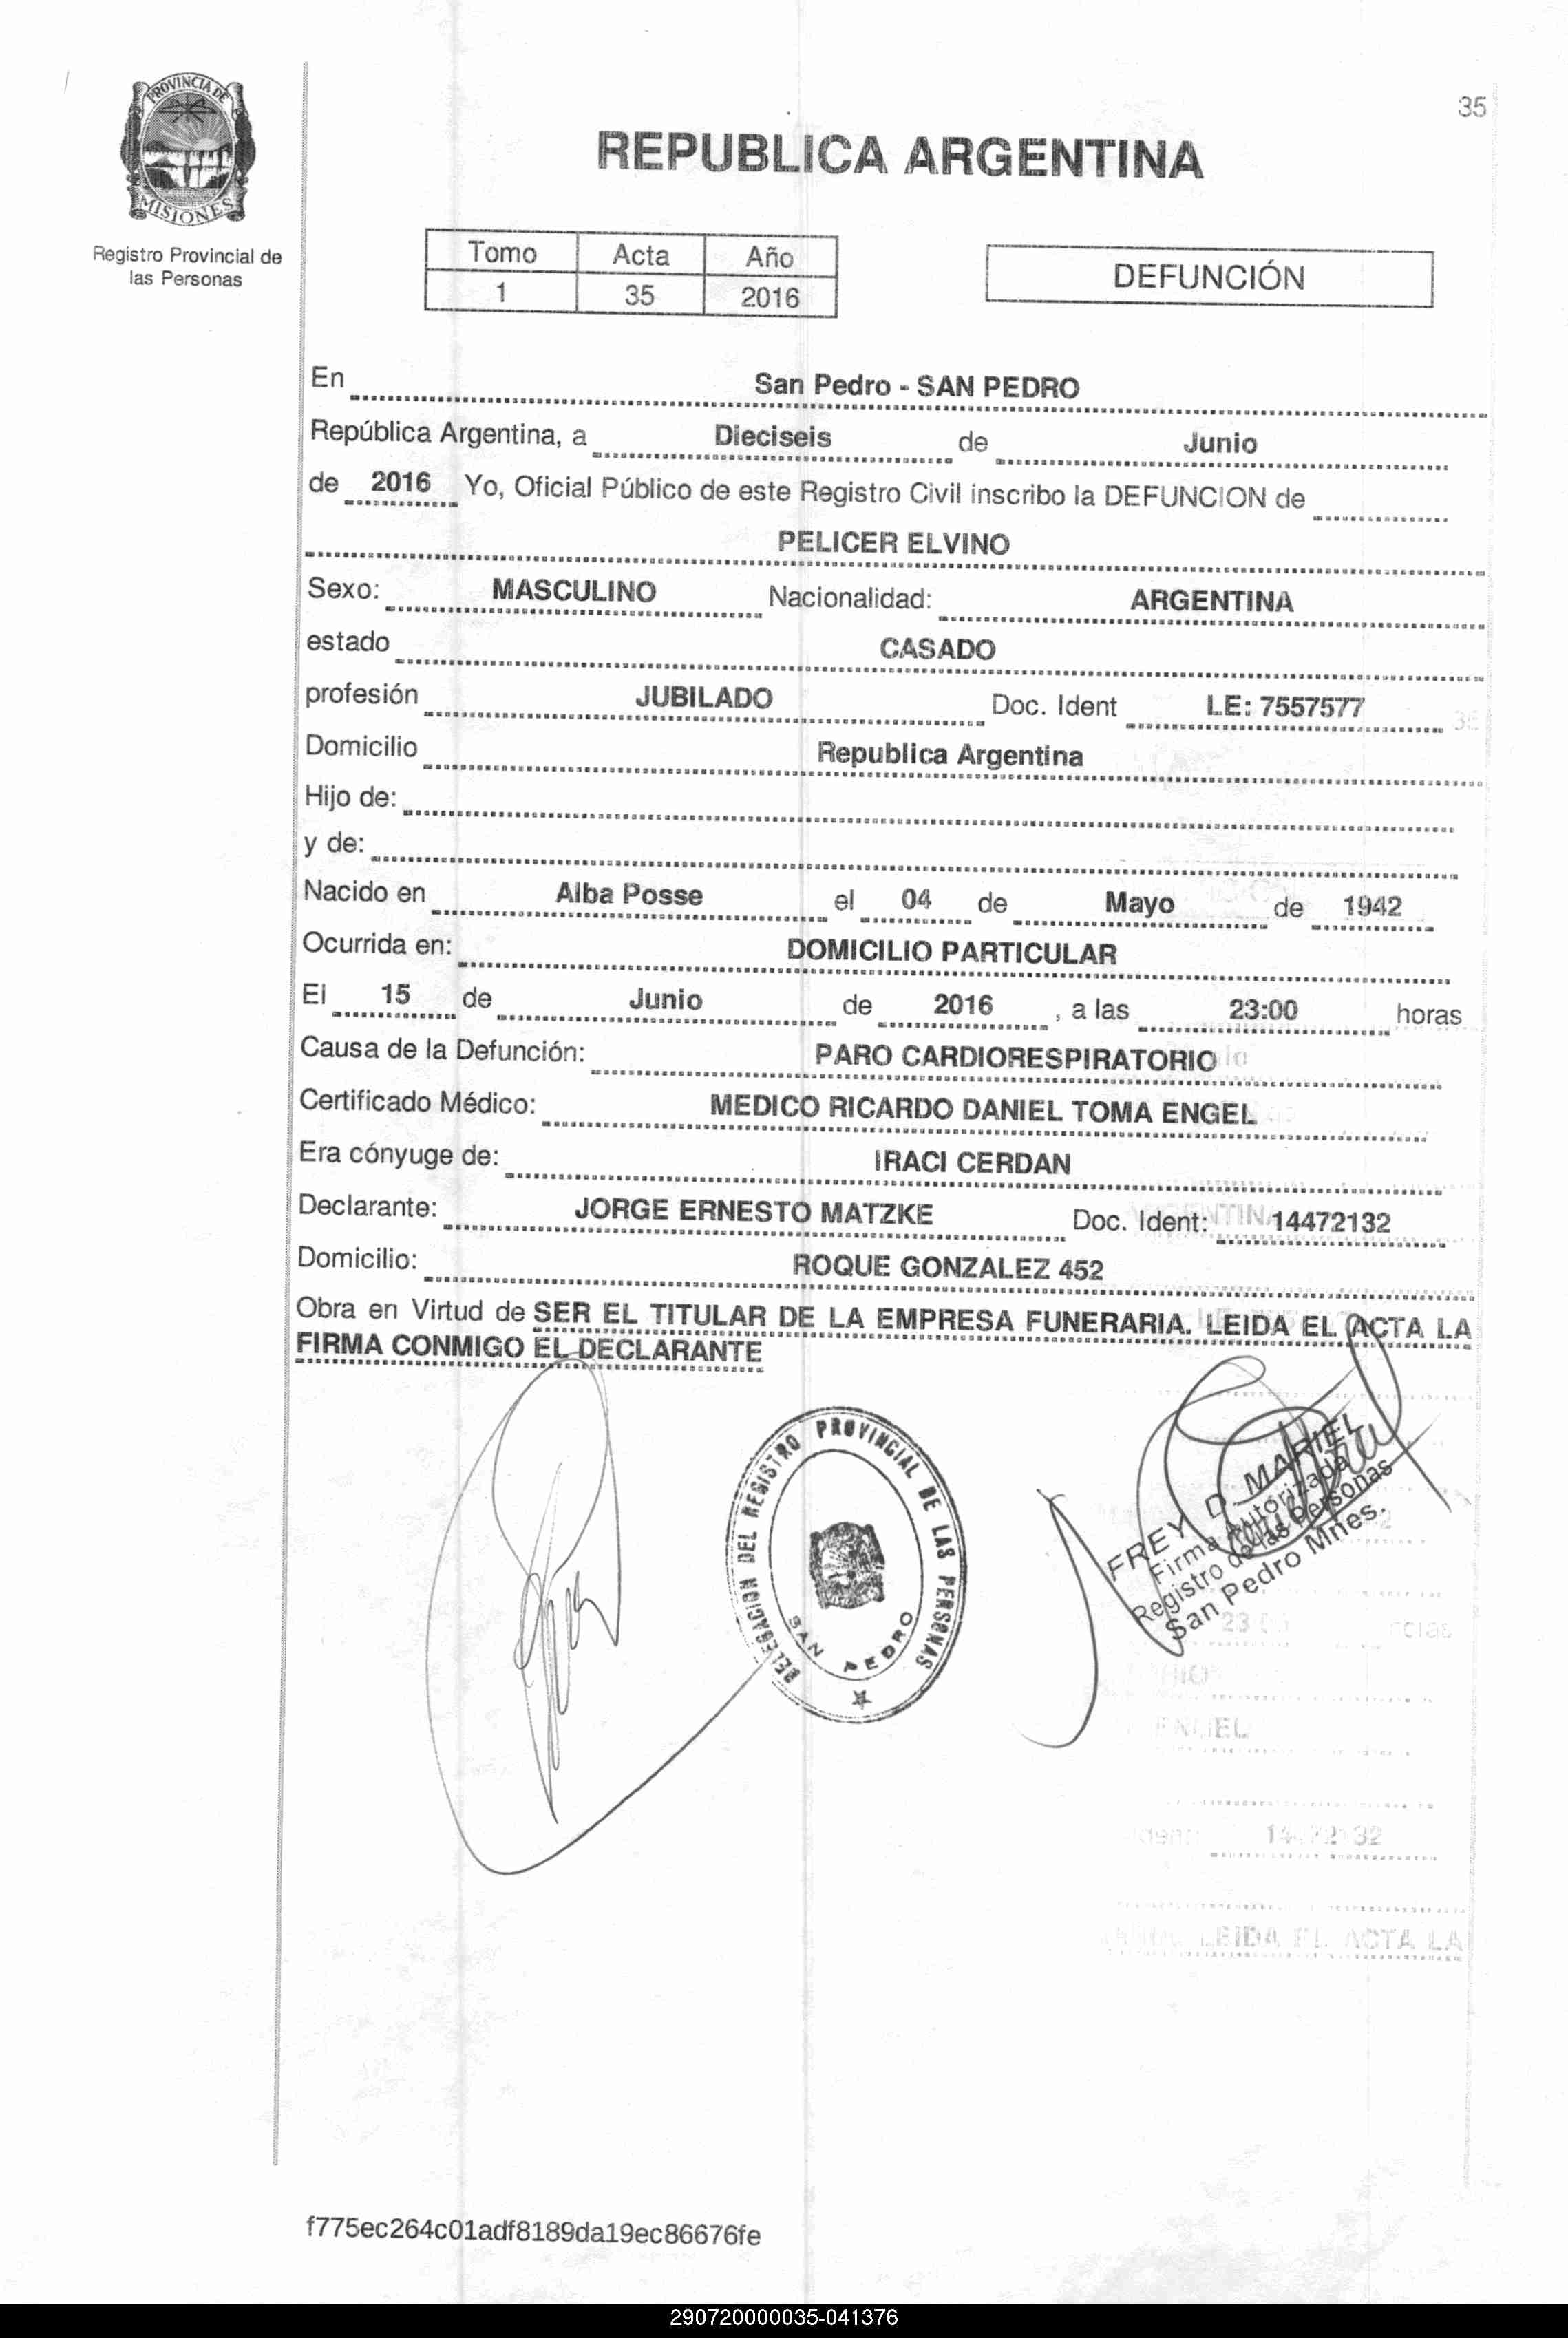 35
PROVINCIA DE
MISIONES
Registro Provincial de
las Personas
REPUBLICA ARGENTINA
Tomo Acta Año
1 35 2016
DEFUNCIÓN
En San Pedro - SAN PEDRO
República Argentina, a Dieciseis de Junio
de 2016 Yo, Oficial Público de este Registro Civil inscribo la DEFUNCION de
PELICER ELVINO
Sexo: MASCULINO Nacionalidad: ARGENTINA
estado CASADO
profesión JUBILADO Doc. Ident LE: 7557577
Domicilio Republica Argentina
Hijo de:
y de:
Nacido en Alba Posse el 04 de Mayo de 1942
Ocurrida en: DOMICILIO PARTICULAR
El 15 de Junio de 2016 , a las 23:00 horas
Causa de la Defunción: PARO CARDIORESPIRATORIO
Certificado Médico: MEDICO RICARDO DANIEL TOMA ENGEL
Era cónyuge de: IRACI CERDAN
Declarante: JORGE ERNESTO MATZKE Doc. Ident: 14472132
Domicilio: ROQUE GONZALEZ 452
Obra en Virtud de SER EL TITULAR DE LA EMPRESA FUNERARIA. LEIDA EL ACTA LA
FIRMA CONMIGO EL DECLARANTE
DELEGACION DEL REGISTRO PROVINCIAL DE LAS PERSONAS
SAN PEDRO
FREY D. MARIEL
Firma Autorizada
Registro de las Personas
San Pedro Mnes.
LEIDA EL ACTA LA
f775ec264c01adf8189da19ec86676fe
290720000035-041376